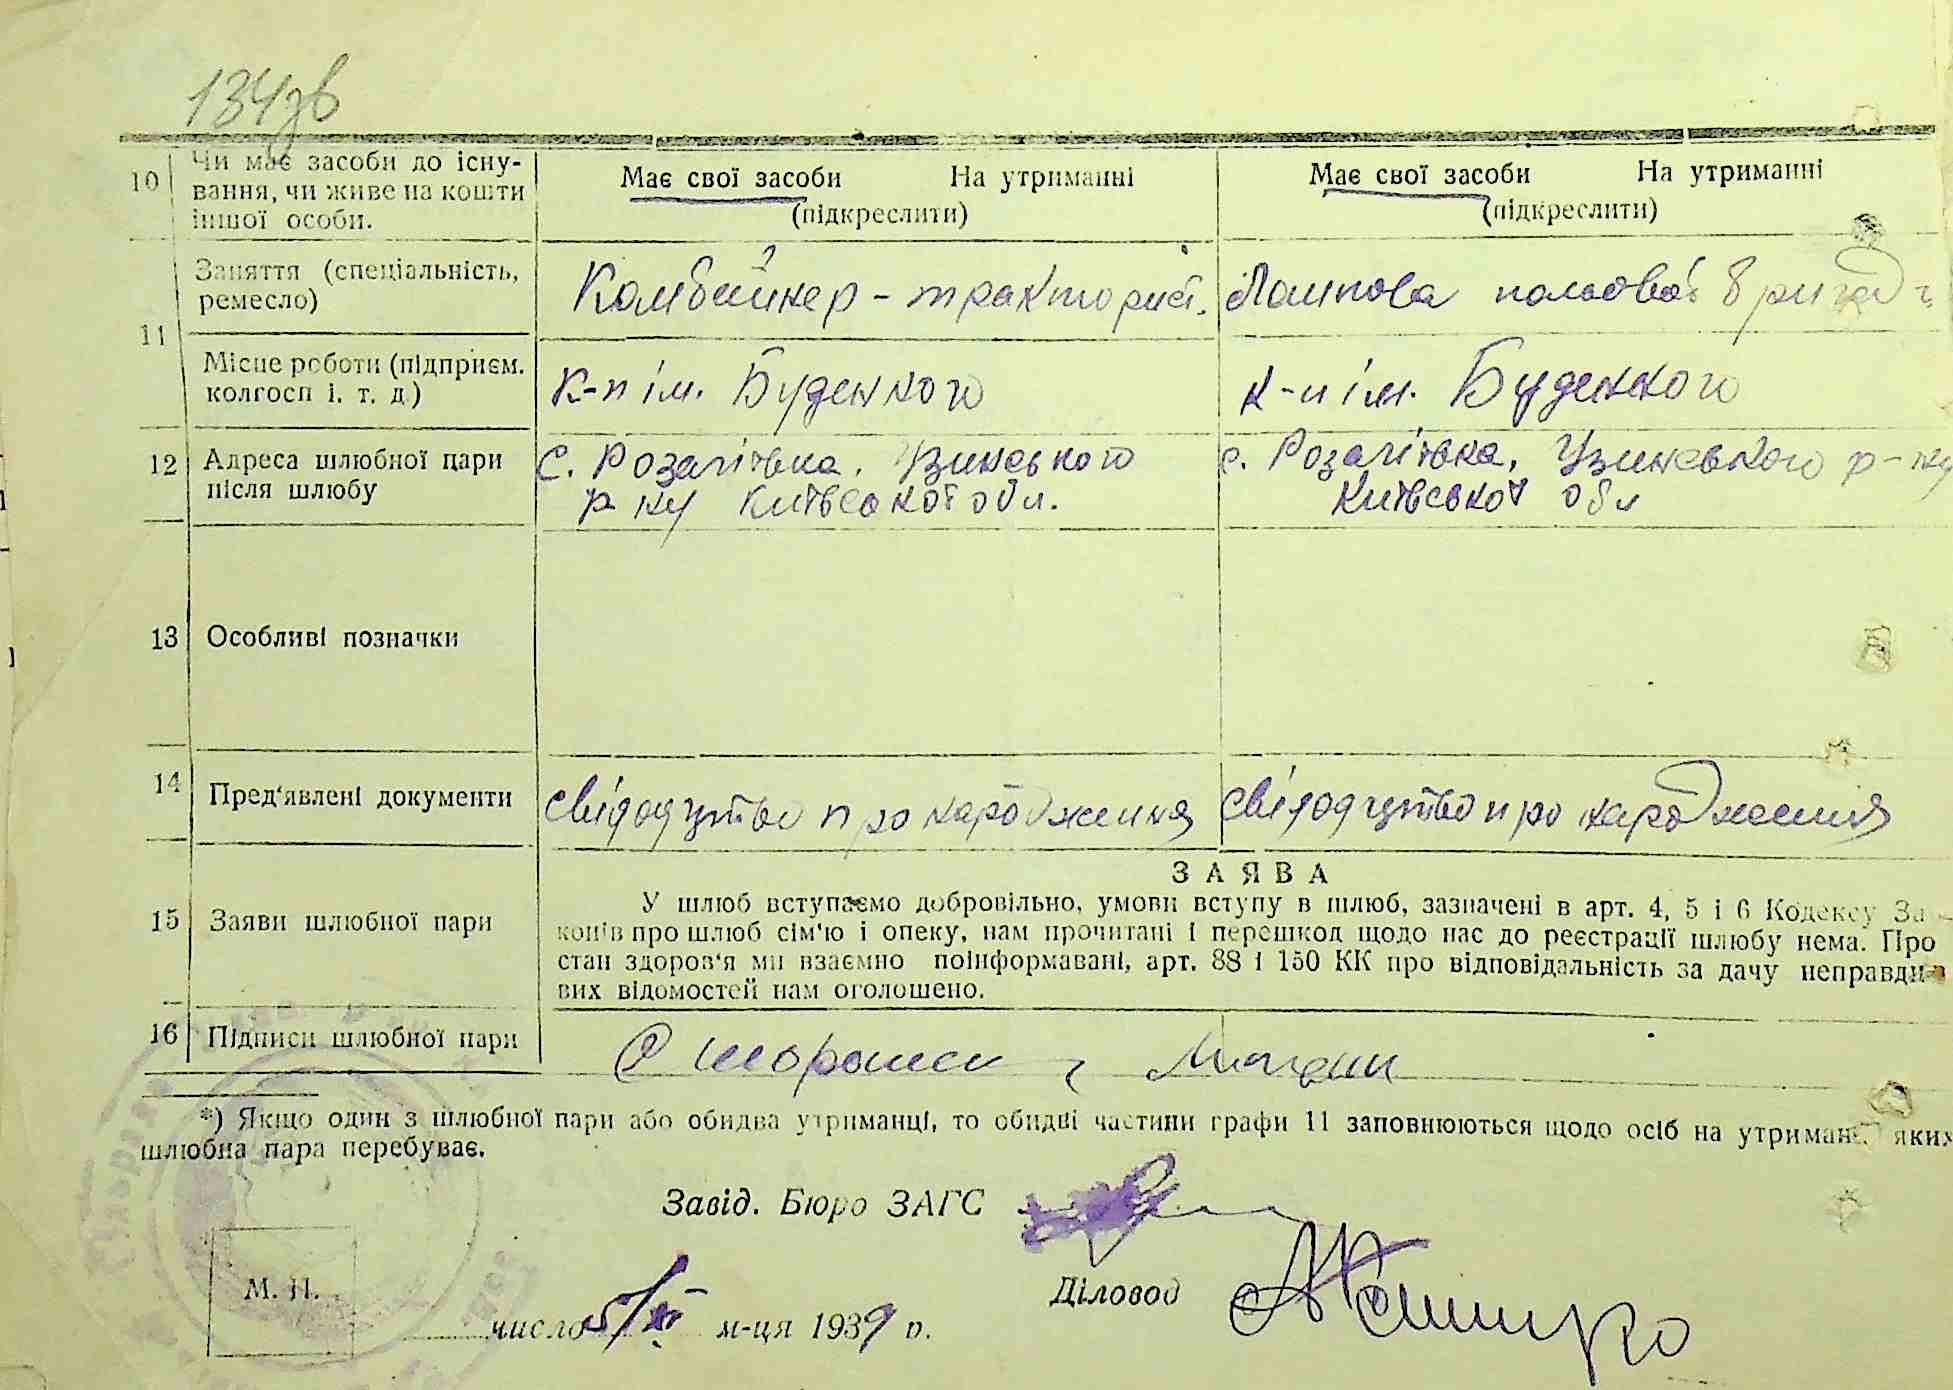 134зв
10 Чи має засоби до існування, чи живе на кошти іншої особи.
Має свої засоби На утриманні
(підкреслити)
Має свої засоби На утриманні
(підкреслити)
11 Заняття (спеціальність, ремесло)
Комбайнер-тракторист.
Ланкова польової бригади
Місце роботи (підприєм. колгосп і. т. д.)
К-п ім. Буденного
к-п ім. Буденного
12 Адреса шлюбної пари після шлюбу
с. Розаліївка, Узинського
р-ну Київської обл.
с. Розаліївка, Узинського р-ну
Київської обл
13 Особливі позначки
14 Пред'явлені документи
свідодутво про народження
свідодутво про народження
15 Заяви шлюбної пари
ЗАЯВА
У шлюб вступаємо добровільно, умови вступу в шлюб, зазначені в арт. 4, 5 і 6 Кодексу За-
конів про шлюб сім'ю і опеку, нам прочитані і перешкод щодо нас до реєстрації шлюбу нема. Про
стан здоров'я ми взаємно поінформавані, арт. 88 і 150 КК про відповідальність за дачу неправди-
вих відомостей нам оголошено.
16 Підписи шлюбної пари
*) Якщо один з шлюбної пари або обидва утриманці, то обидві частини графи 11 заповнюються щодо осіб на утриманні яких
шлюбна пара перебуває.
Завід. Бюро ЗАГС
М. П.
Діловод
число 5/XI м-ця 1939 р.